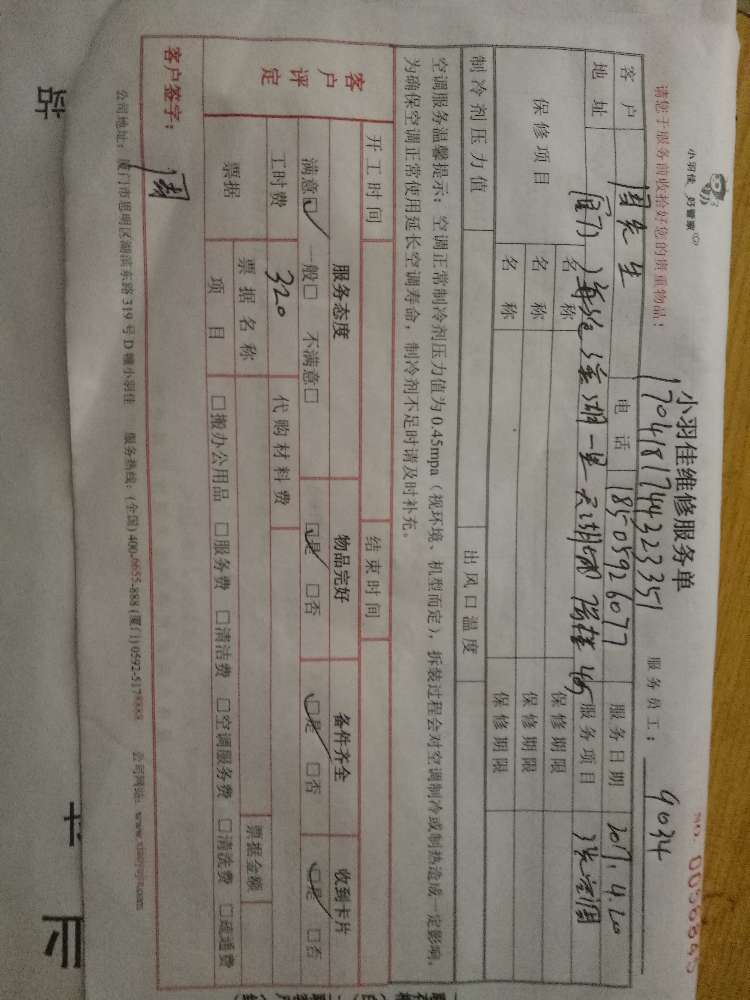 小羽佳 好管家
小羽佳维修服务单
请您于服务前收拾好您的贵重物品！
1704181744323351
服务员工： 9034
客户 周先生 电话 18505926077 服务日期 2017.4.20
地址 服务项目
保修项目 名称 保修期限
名称 保修期限
名称 保修期限
制冷剂压力值 出风口温度
空调服务温馨提示：空调正常制冷剂压力值为0.45mpa（视环境、机型而定），拆装过程会对空调制冷或制热造成一定影响，
为确保空调正常使用延长空调寿命，制冷剂不足时请及时补充。
开工时间 结束时间
客户评定 服务态度 物品完好 备件齐全 收到卡片
满意☑ 一般□ 不满意□ ☑是 □否 ☑是 □否 ☑是 □否
工时费 320 代购材料费
票据 票据名称 票据金额
项目 □搬办公用品 □服务费 □清洁费 □空调服务费 □清洗费 □疏通费
客户签字： 周
公司地址：厦门市思明区湖滨东路319号D幢小羽佳 服务热线：(全国) 400-6655-888 (厦门) 0592-5178888 公司网站：